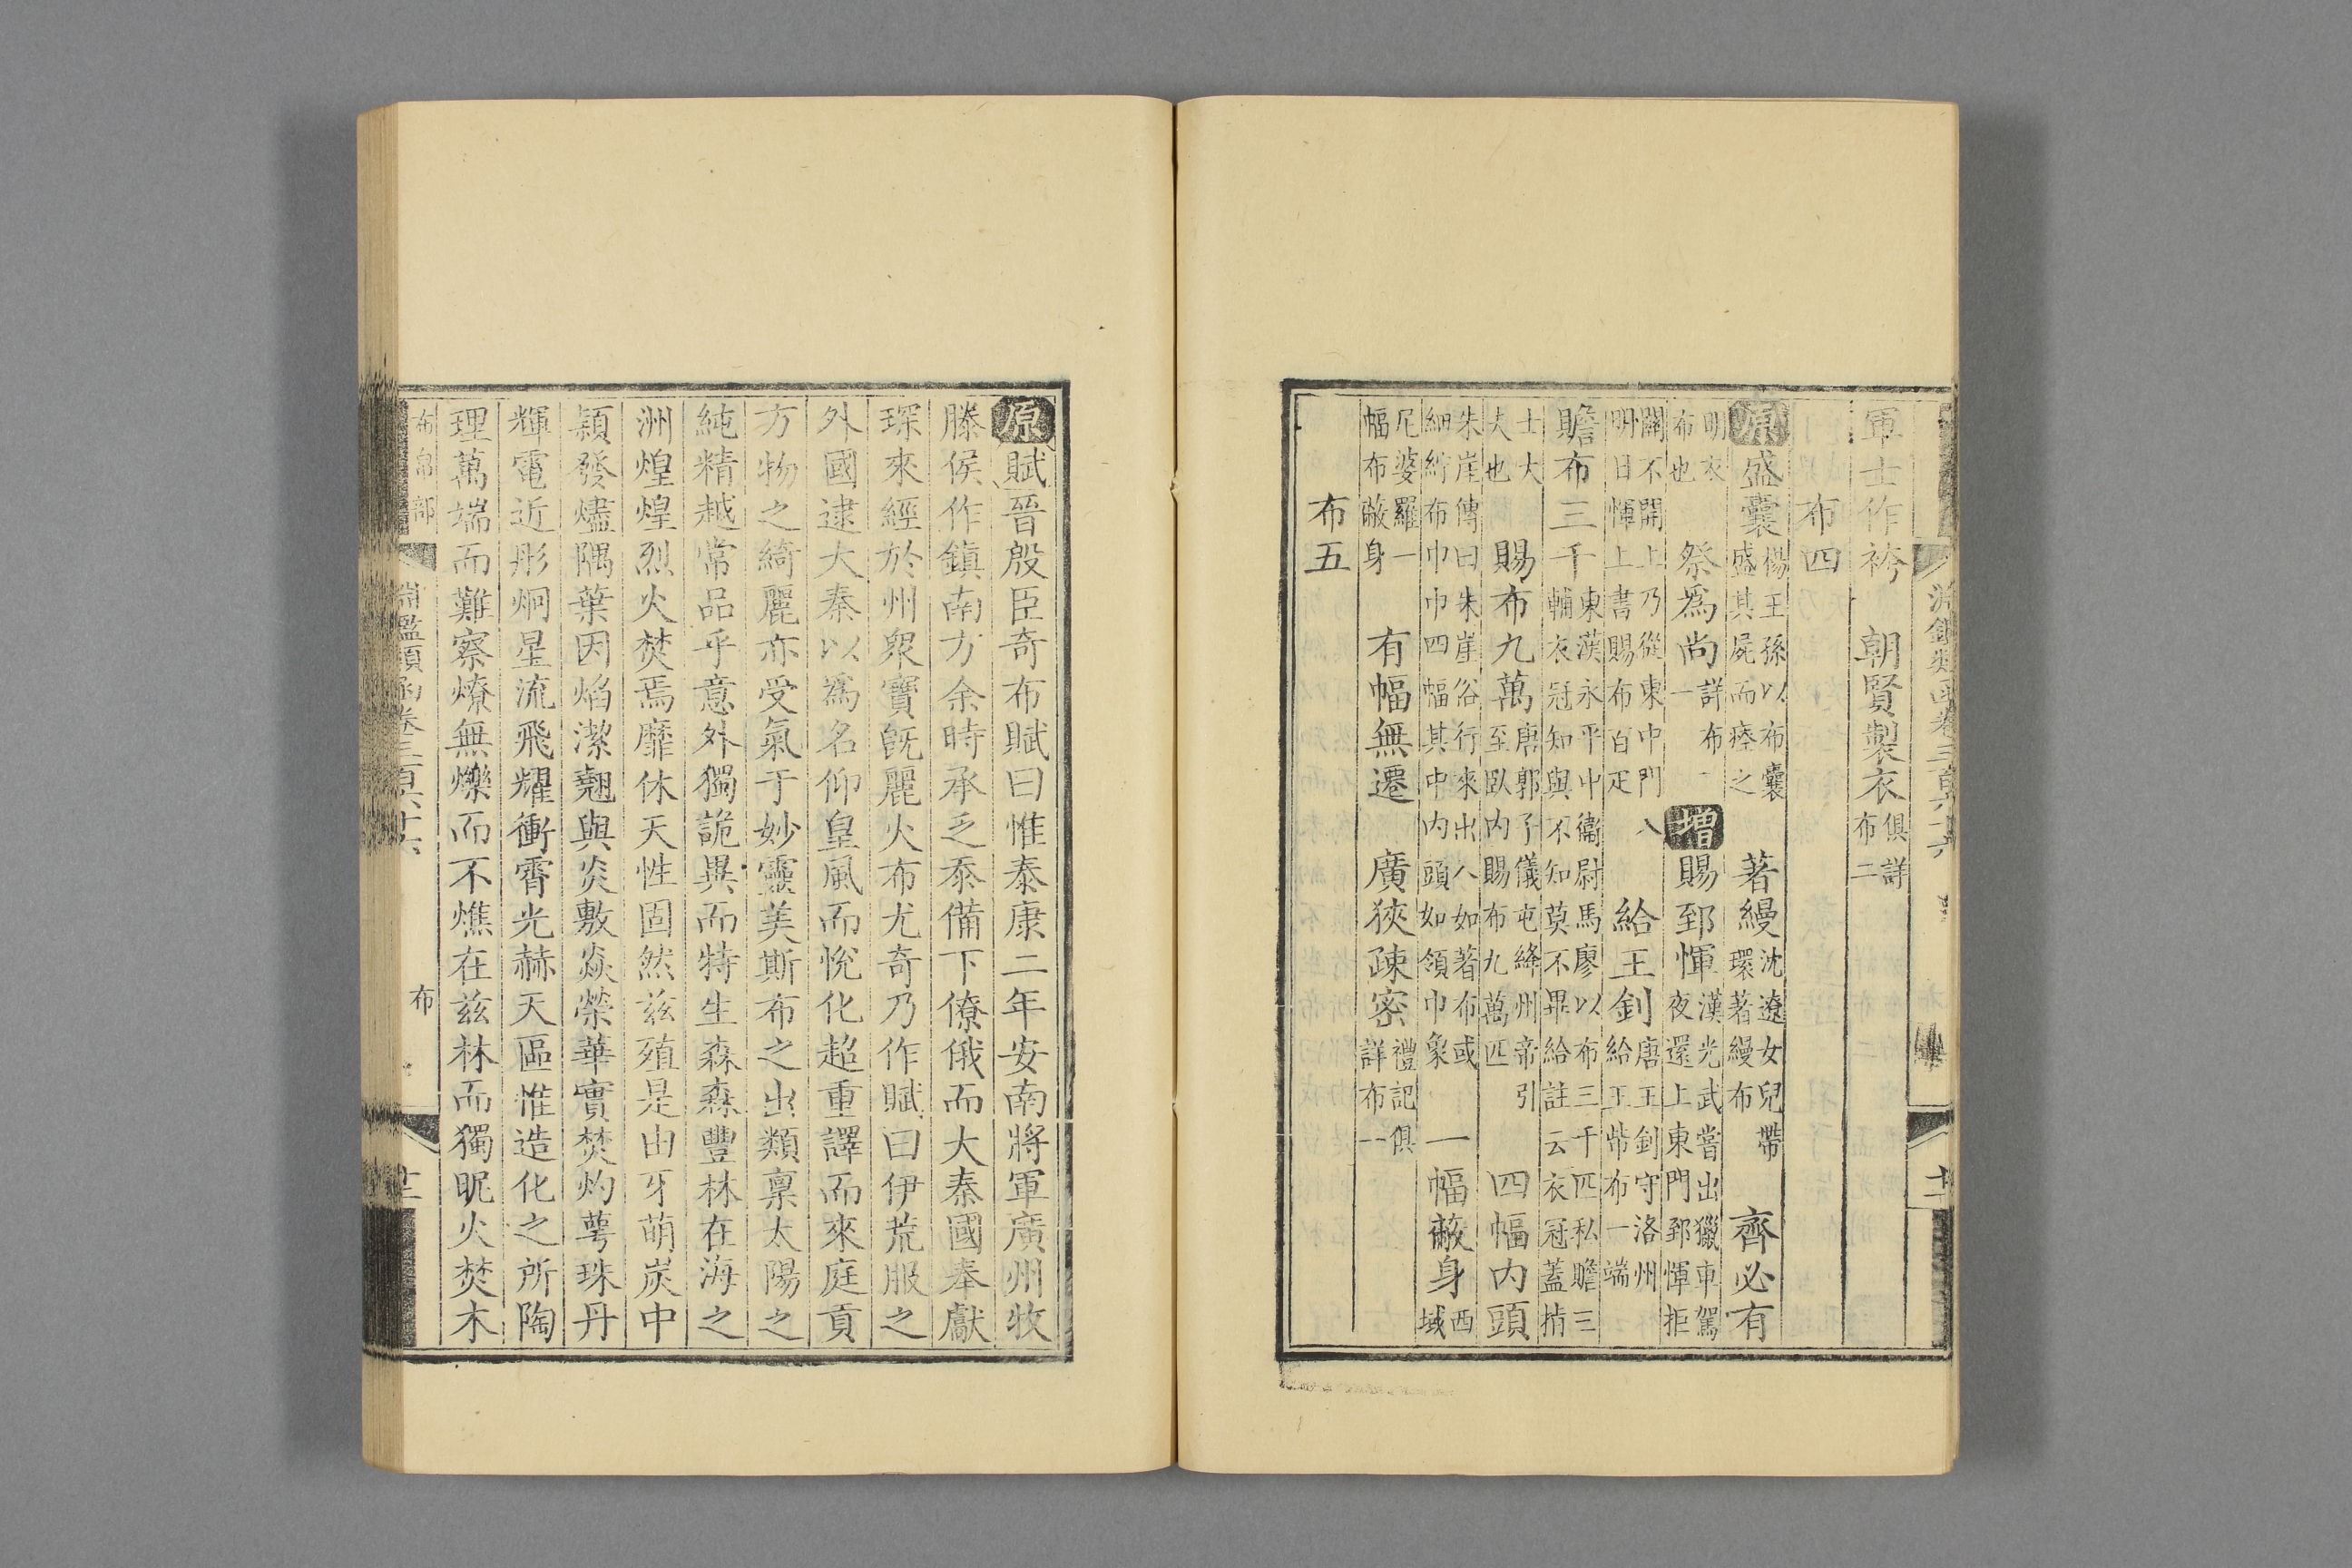 淵鑑類函卷三百六十六
軍士作袴 朝賢製衣俱詳布二
布四
原盛囊楊王孫以布囊盛其屍而瘞之 著縵沈遼女兒帶環著縵布 齊必有
明衣布也 祭爲尚詳布一 增賜郅惲漢光武嘗出獵車駕夜還上東門郅惲拒
關不開上乃從東中門入明日惲上書賜布百疋 給王釗唐王釗守洛州給布一端
贍布三千東漢永平中衞尉馬廖以布三千匹私贍三輔衣冠知與不知莫不畢給註云衣冠蓋指
士大夫也 賜布九萬唐郭子儀屯絳州帝引至臥內賜布九萬匹 四幅內頭
朱崖傳曰朱崖俗行來出入如著布或細紵布巾巾四幅其中內頭如領巾象 一幅蔽身西域
尼婆羅一幅布蔽身 有幅無遷 廣狹疎密禮記俱詳布一
布五
原賦晉殷臣奇布賦曰惟泰康二年安南將軍廣州牧
滕侯作鎮南方余時承乏忝備下僚俄而大秦國奉獻
琛來經於州衆寶既麗火布尤奇乃作賦曰伊荒服之
外國逮大秦以爲名仰皇風而悅化超重譯而來庭貢
方物之綺麗亦受氣于妙靈美斯布之出類稟太陽之
純精越常品乎意外獨詭異而特生森森豐林在海之
洲煌煌烈火焚焉靡休天性固然兹殖是由牙萌炭中
頴發燼隅葉因焰潔翹與炎敷焱榮華實焚灼蕚珠丹
輝電近彤炯星流飛耀衝霄光赫天區惟造化之所陶
理萬端而難察燎無爍而不燋在兹林而獨昵火焚木
布帛部 淵鑑類函卷三百六十六 布